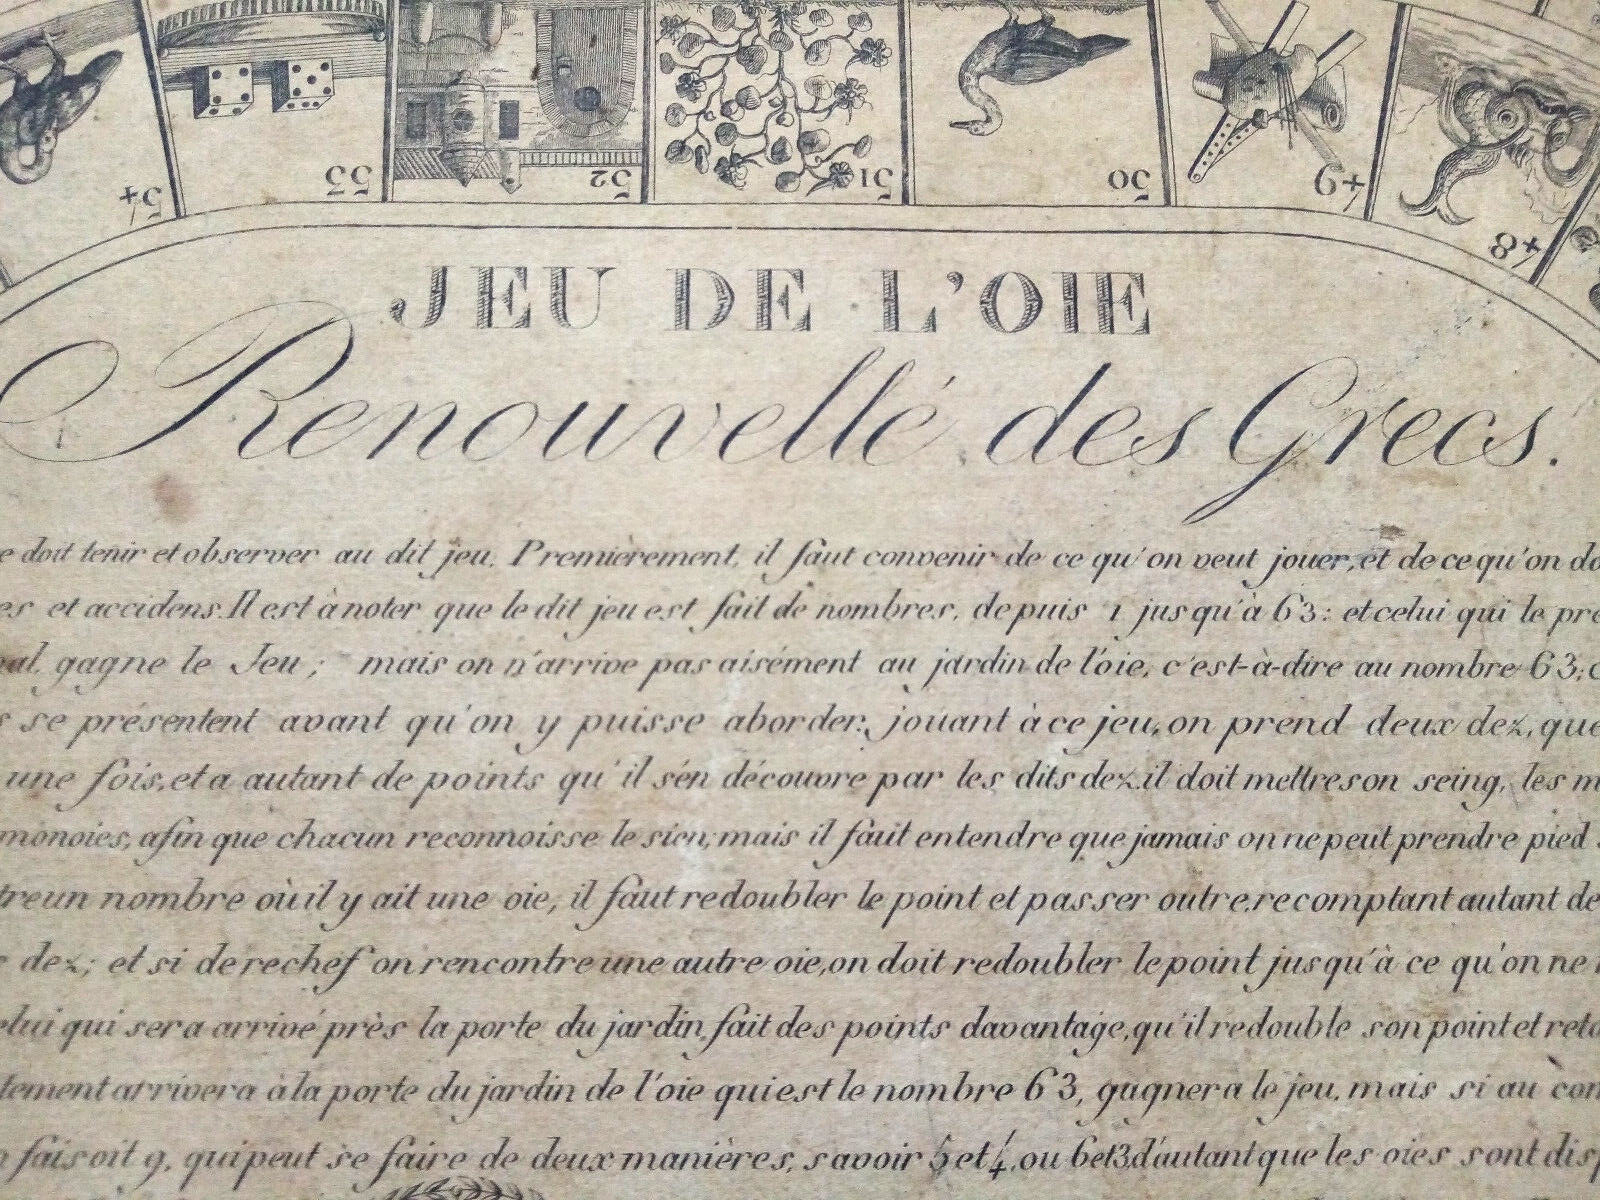 54 53 52 51 50 49 48
JEU DE L'OIE
Renouvellé des Grecs.
e doit tenir et observer au dit jeu. Premièrement, il faut convenir de ce qu'on veut jouer, et de ce qu'on do
es et accidens. Il est à noter que le dit jeu est fait de nombres, depuis 1 jusqu'à 63: et celui qui le pre
gagne le Jeu; mais on n'arrive pas aisément au jardin de l'oie, c'est-à-dire au nombre 63; c
s se présentent avant qu'on y puisse aborder, jouant à ce jeu, on prend deux dez, que
une fois, et a autant de points qu'il s'én découvre par les dits dez, il doit mettre son seing, les m
monoies, afin que chacun reconnoisse le sien; mais il faut entendre que jamais on ne peut prendre pied
tre un nombre où il y ait une oie, il faut redoubler le point et passer outre, recomptant autant de
s dez; et si derechef on rencontre une autre oie, on doit redoubler le point jusqu'à ce qu'on ne
elui qui sera arrivé près la porte du jardin, fait des points davantage, qu'il redouble son point et reto
tement arrivera à la porte du jardin de l'oie qui est le nombre 63, gagnera le jeu, mais si au con
n faisoit 9, qui peut se faire de deux manières, savoir 5 et 4, ou 6 et 3, d'autant que les oies sont disp